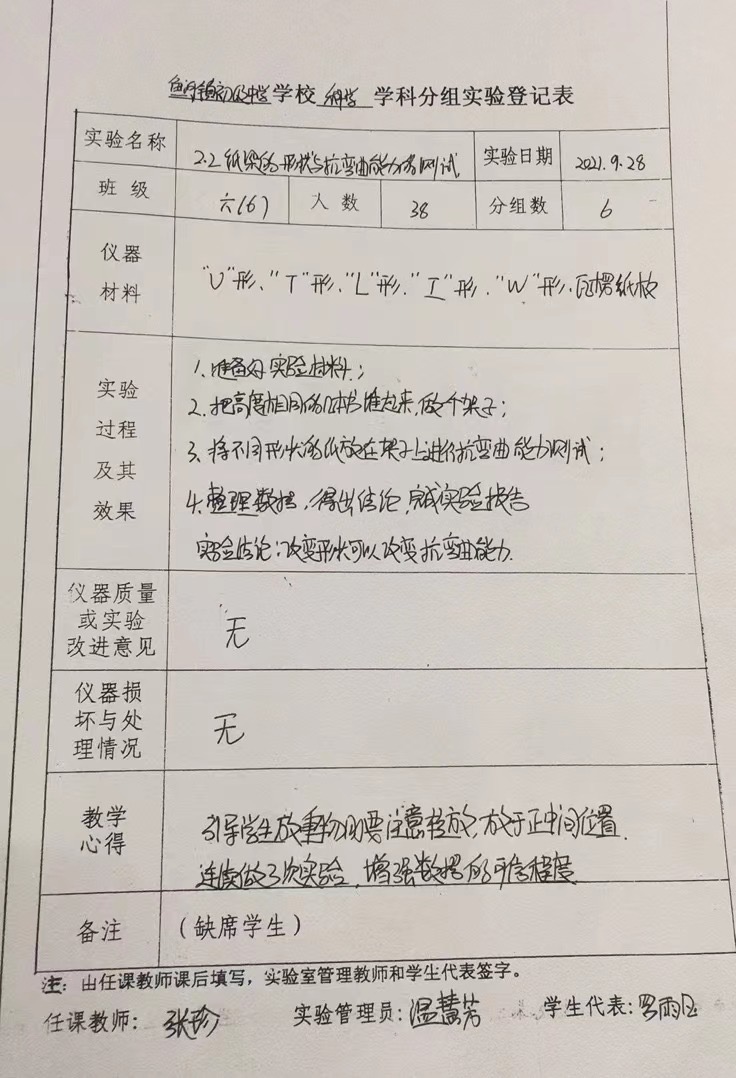 初级中学学校 科学 学科分组实验登记表
实验名称 2.2纸梁的形状与抗弯曲能力的测试 实验日期 2021.9.28
班级 六(6) 人数 38 分组数 6
仪器材料 "U"形、"T"形、"L"形、"工"形、"W"形、瓦楞纸板
实验过程及其效果 1、准备好实验材料;
2、把高度相同的几本书堆起来,做个架子;
3、将不同形状的纸放在架子上进行抗弯曲能力测试;
4、整理数据,得出结论,完成实验报告
实验结论:改变形状可以改变抗弯曲能力.
仪器质量或实验改进意见 无
仪器损坏与处理情况 无
教学心得 引导学生放重物时要注意轻放,放于正中间位置.
连续做3次实验,增强数据的可信程度
备注 (缺席学生)
注:由任课教师课后填写,实验室管理教师和学生代表签字。
任课教师:张珍 实验管理员:温慧芳 学生代表:罗雨